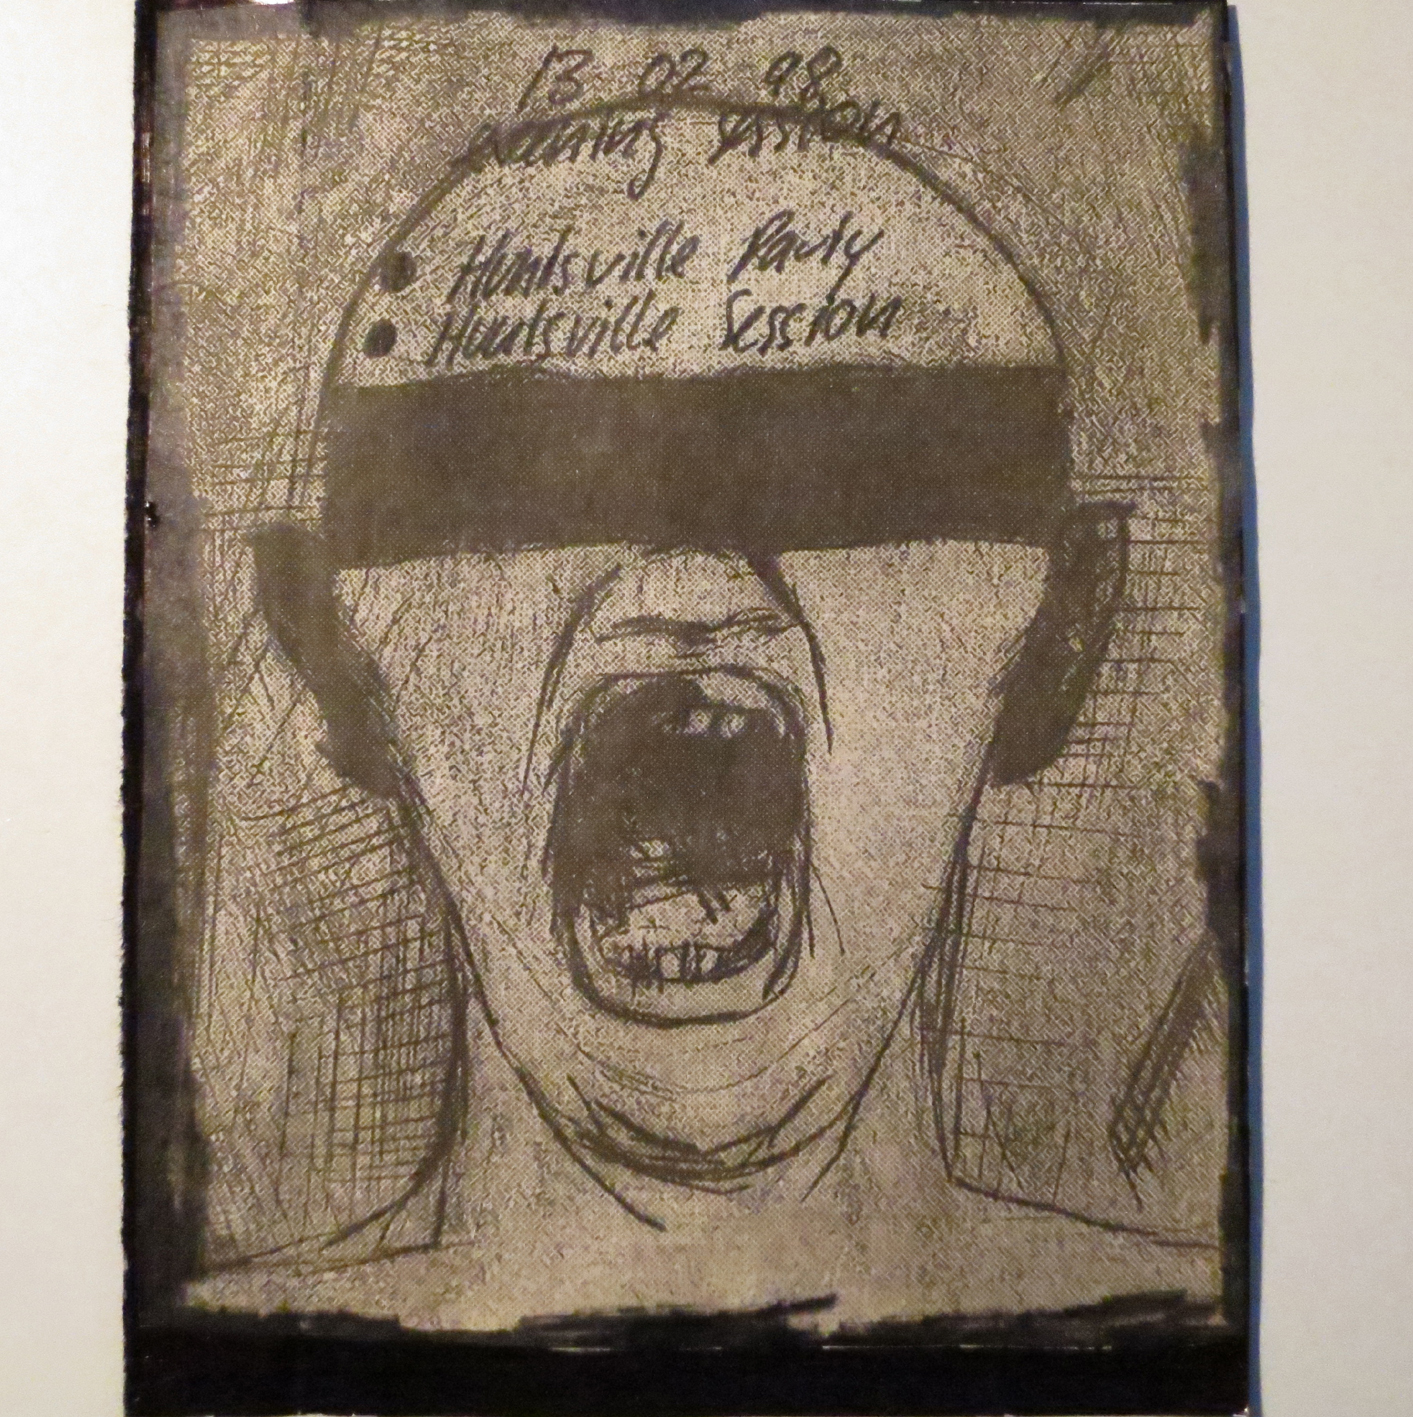 13 02 98
evening session
Huntsville Party
Huntsville Session